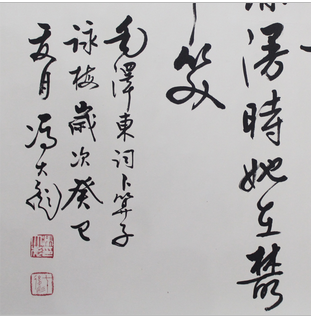 漫時她在叢
笑
毛澤東詞卜算子
詠梅歲次癸巳
夏月馮大彪